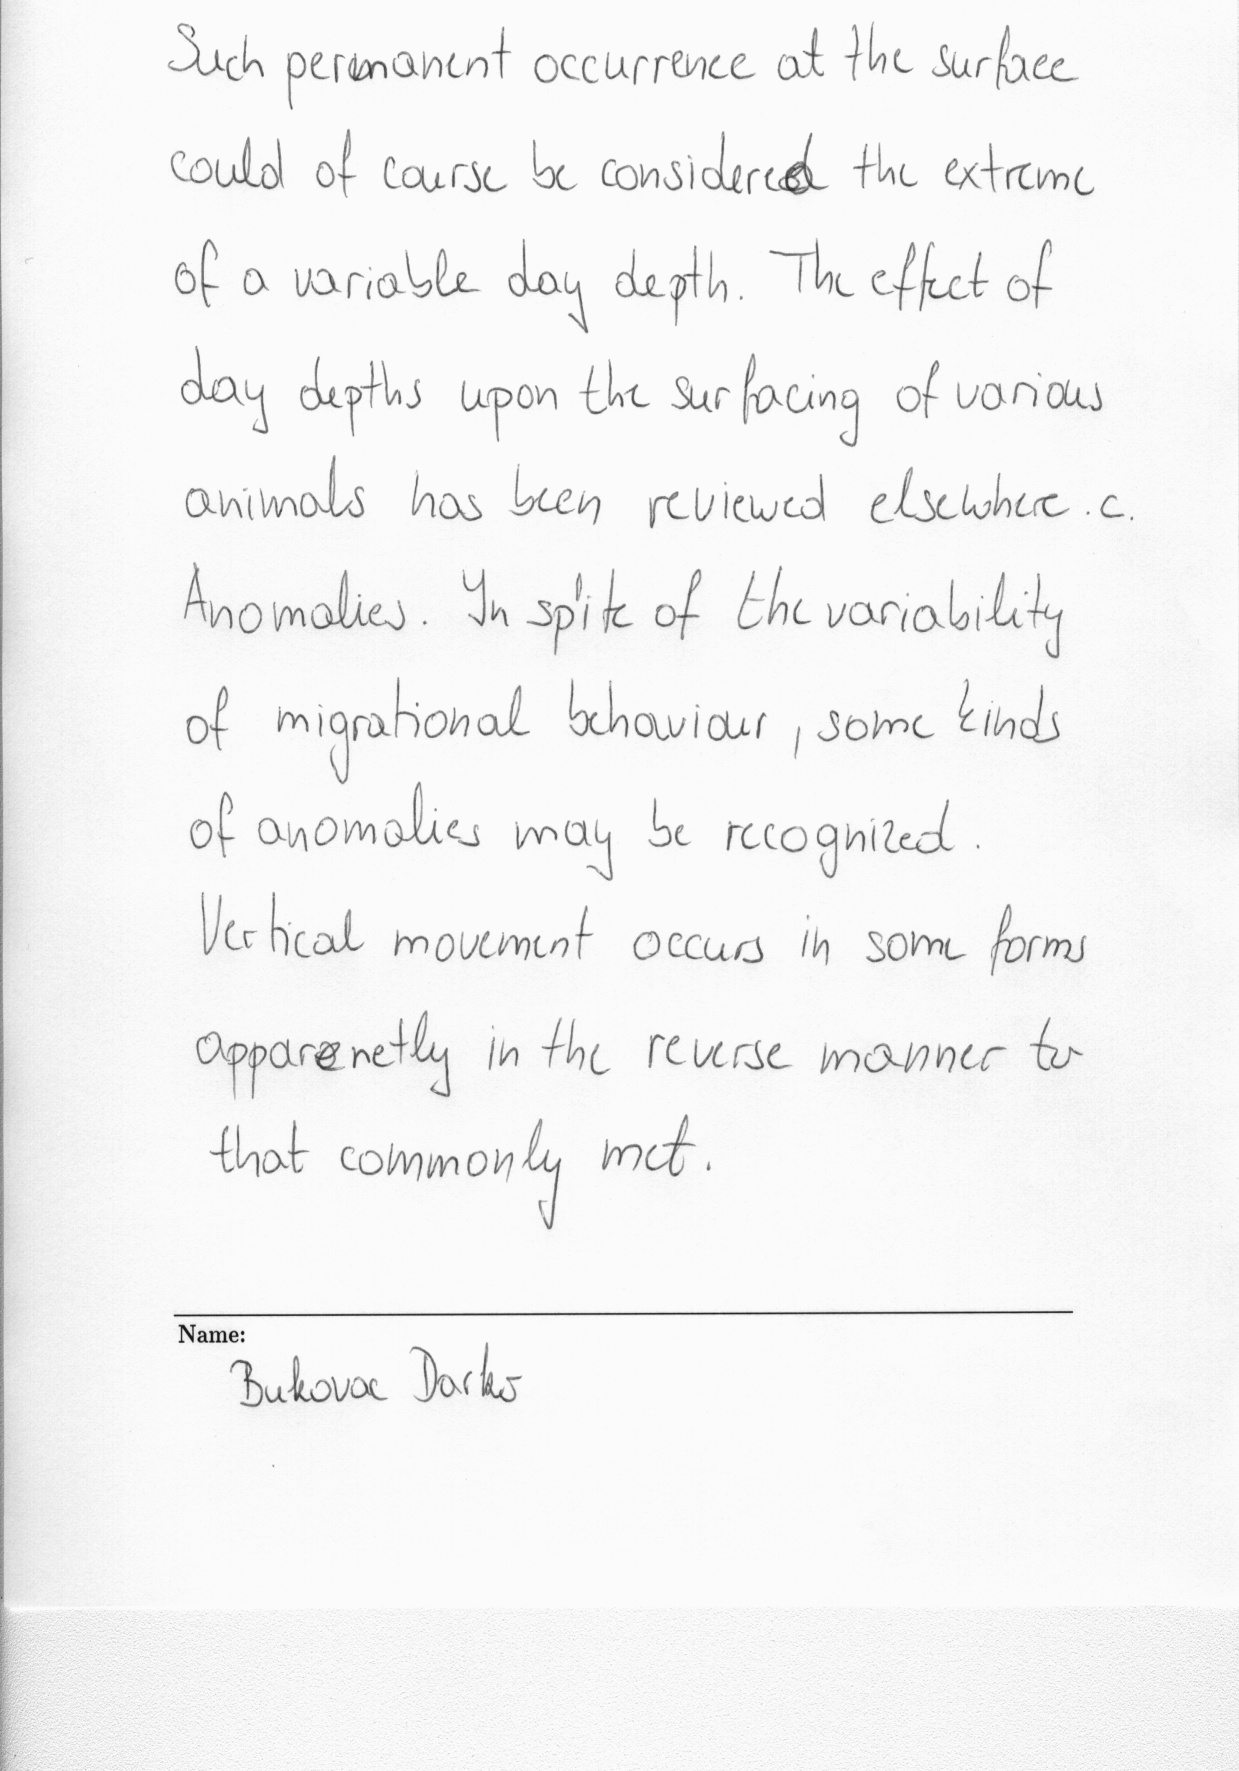 Such permanent occurrence at the surface
could of course be considered the extreme
of a variable day depth. The effect of
day depths upon the surfacing of various
animals has been reviewed elsewhere. c.
Anomalies. In spite of the variability
of migrational behaviour, some kinds
of anomalies may be recognized.
Vertical movement occurs in some forms
apparenetly in the reverse manner to
that commonly met.
Name:
Bukovac Darko